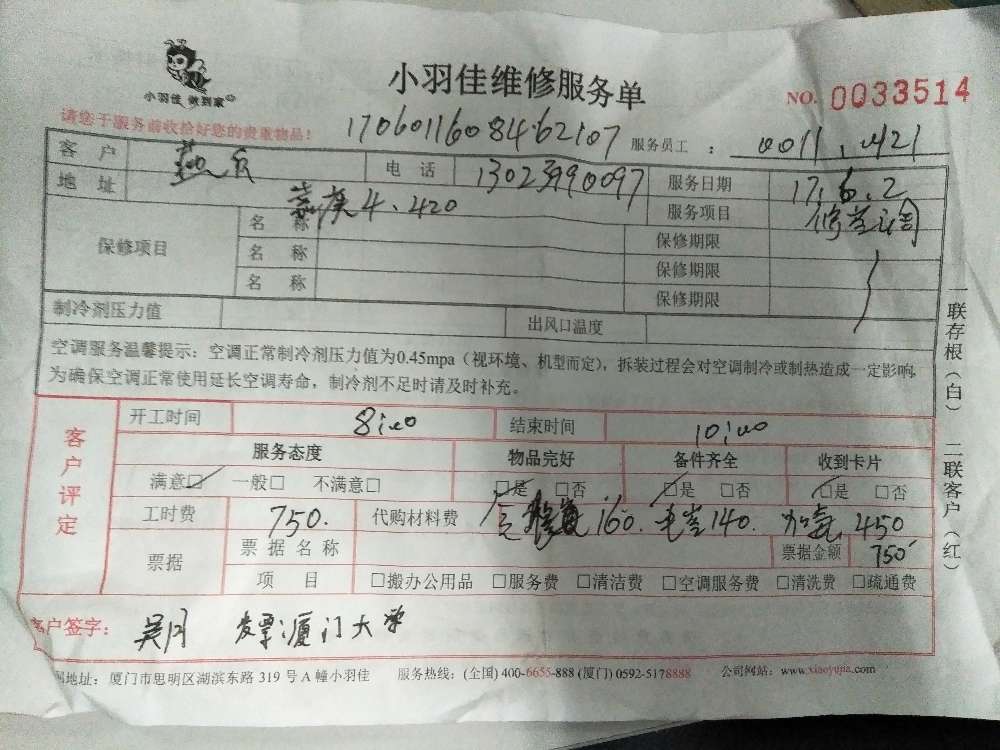 小羽佳 做到家
小羽佳维修服务单
NO. 0033514
请您于服务前收拾好您的贵重物品！
17060116084462107
服务员工：0011、0421
客户 电话 13023990097 服务日期 17.6.2
地址 嘉庚4、420 服务项目 修空调
保修项目 名称 保修期限
名称 保修期限
名称 保修期限
制冷剂压力值 出风口温度
空调服务温馨提示：空调正常制冷剂压力值为0.45mpa（视环境、机型而定），拆装过程会对空调制冷或制热造成一定影响，
为确保空调正常使用延长空调寿命，制冷剂不足时请及时补充。
客户评定
开工时间 8:00 结束时间 10:00
服务态度 物品完好 备件齐全 收到卡片
满意□ 一般□ 不满意□ □是 □否 □是 □否 □是 □否
工时费 750. 代购材料费 160. 140. 加氟 450
票据 票据名称 票据金额 750
项目 □搬办公用品 □服务费 □清洁费 □空调服务费 □清洗费 □疏通费
客户签字： 吴月 发票:厦门大学
地址：厦门市思明区湖滨东路 319 号 A 幢小羽佳 服务热线：(全国) 400-6655-888 (厦门) 0592-5178888 公司网站：www.xiaoyujia.com
一联存根（白） 二联客户（红）